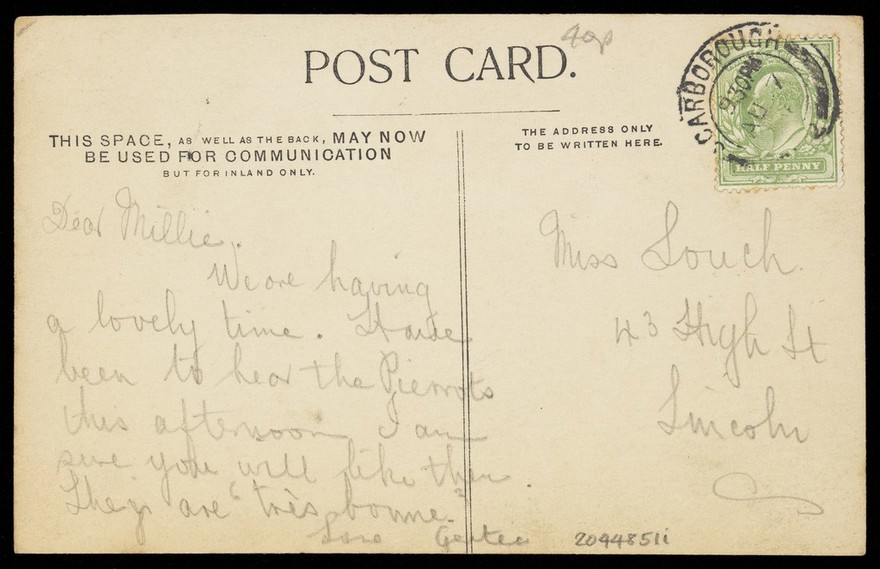 40p
POST CARD.
THIS SPACE, AS WELL AS THE BACK, MAY NOW
BE USED FOR COMMUNICATION
BUT FOR INLAND ONLY.
THE ADDRESS ONLY
TO BE WRITTEN HERE.
SCARBOROUGH
930PM
AU 7
HALF PENNY
Dear Millie.
We are having
a lovely time. Have
been to hear the Pierrots
this afternoon I am
sure you will like them.
They are "très bonne."
Love
Miss Louch.
43 High St
Lincoln
20448511